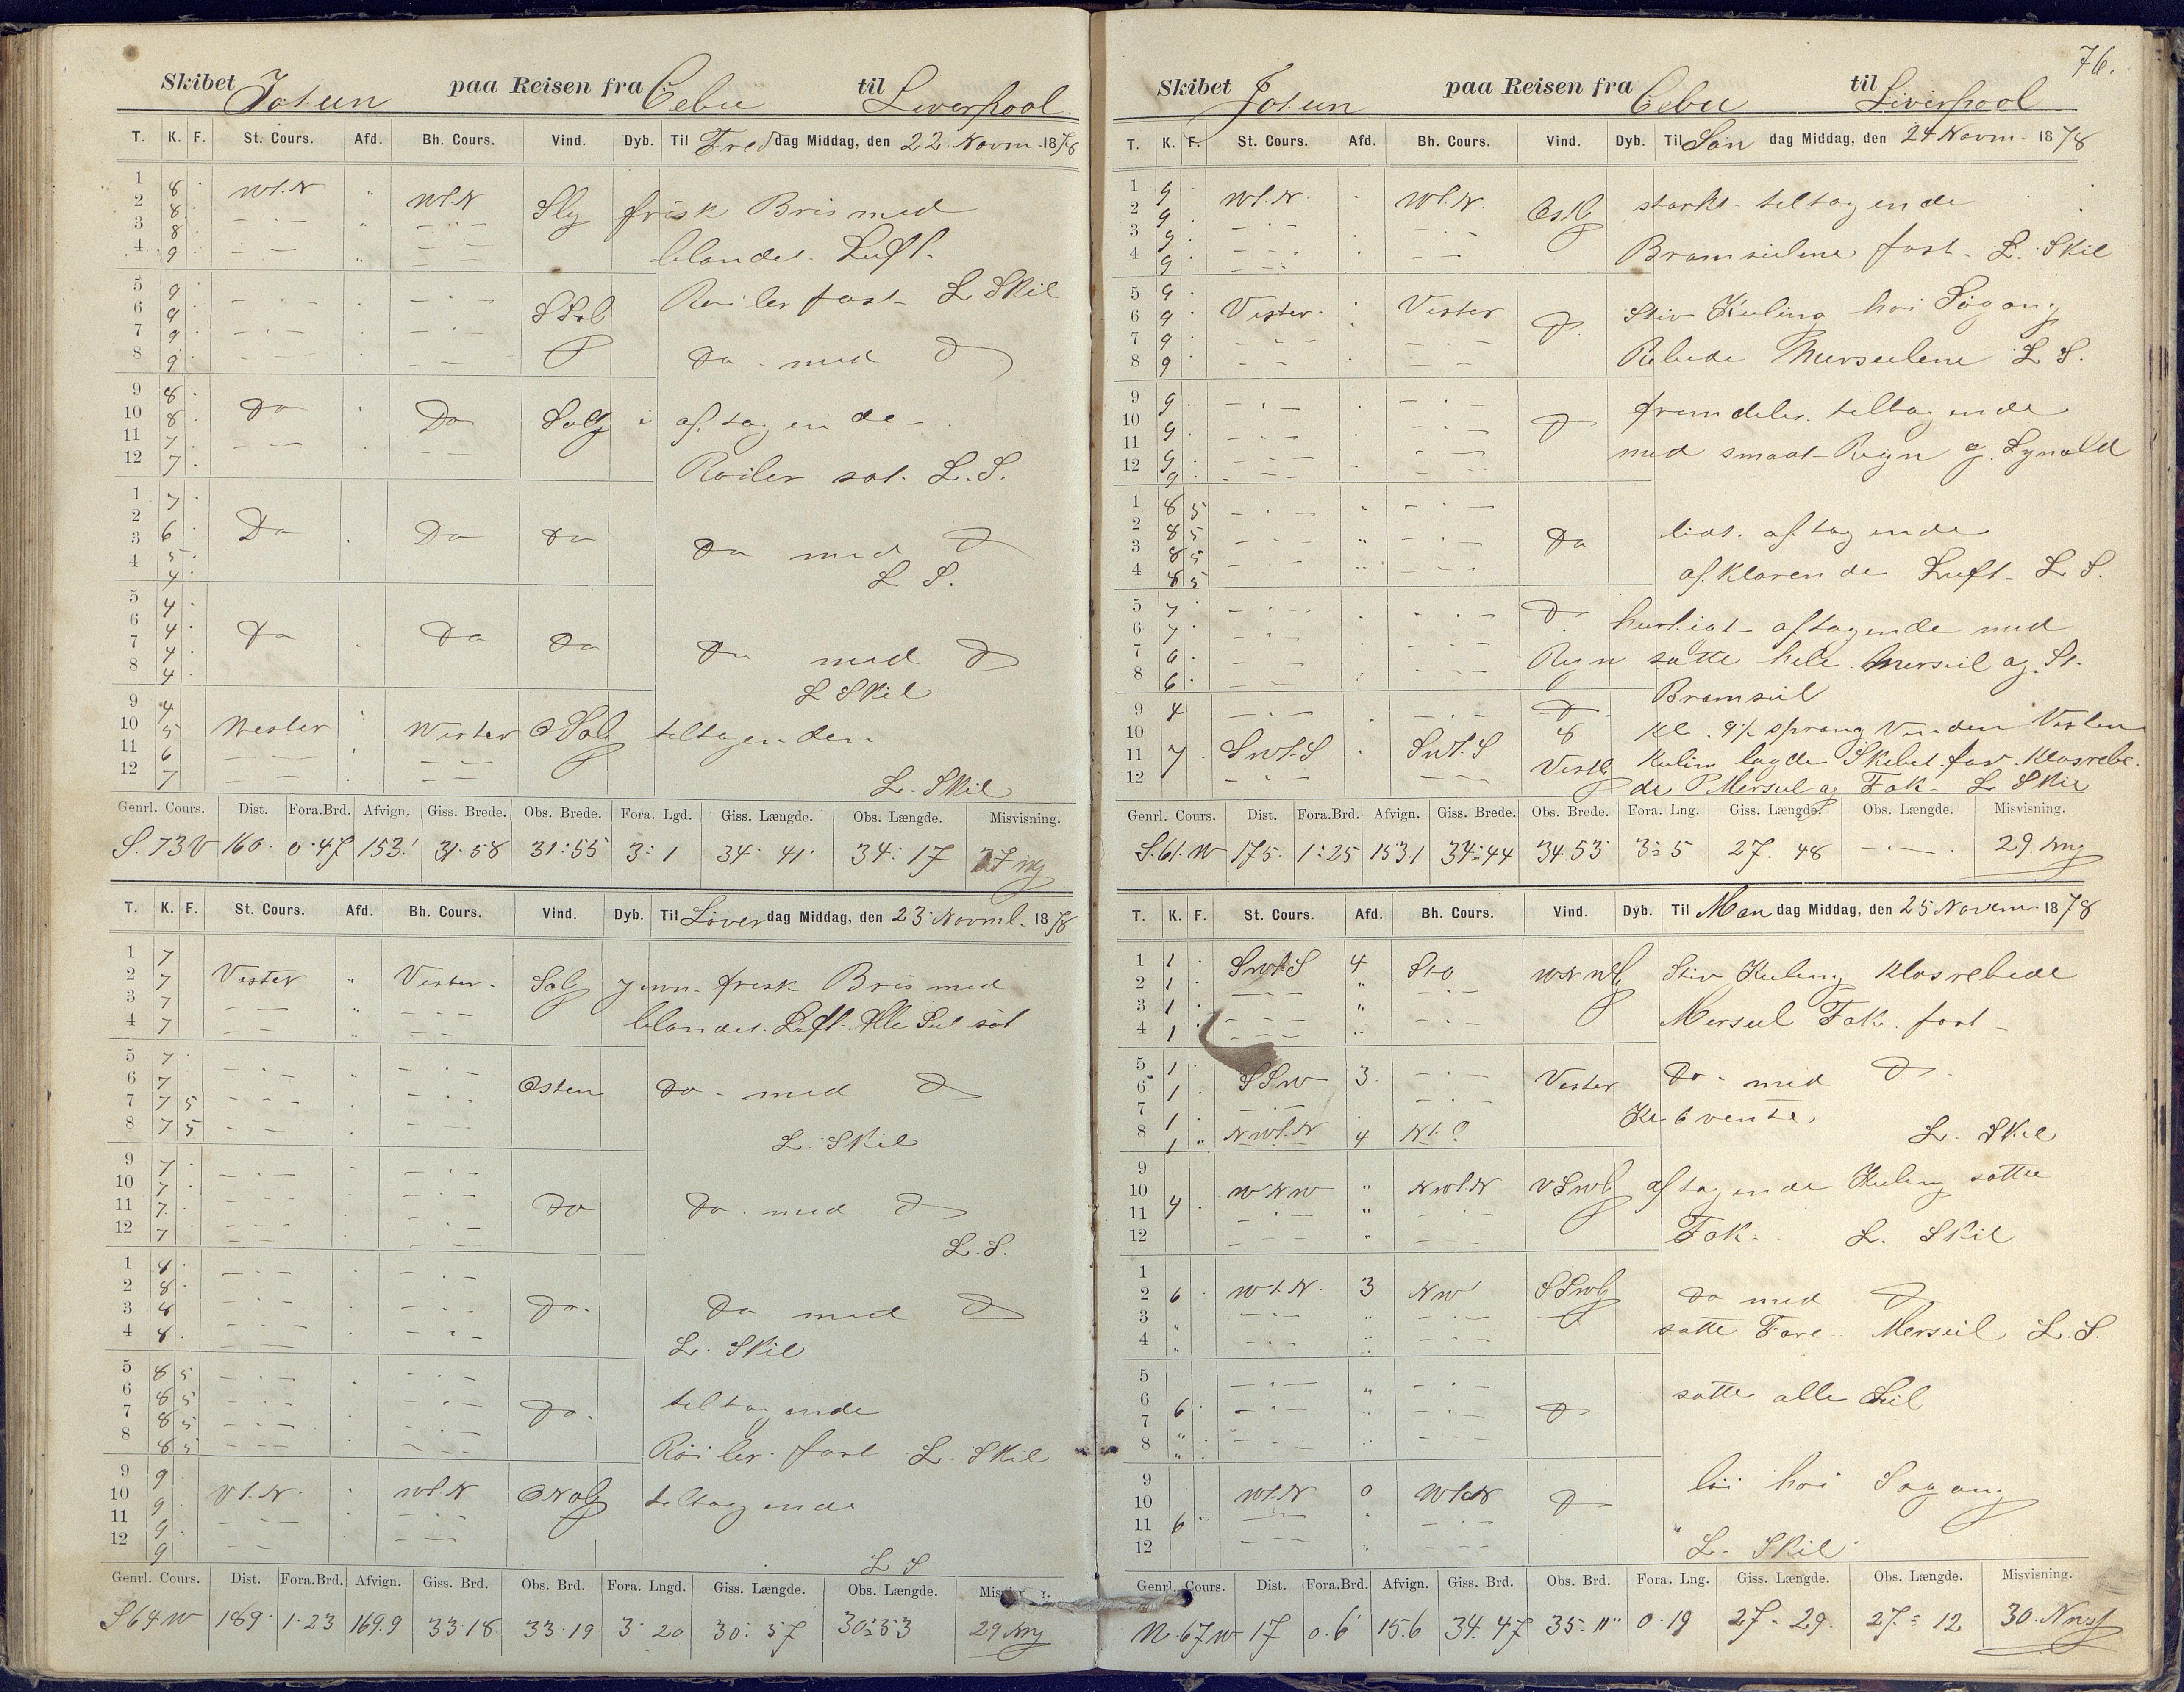 Skibet Jotun paa Reisen fra Cebu til Liverpool
T. K. F. St. Cours. Afd. Bh. Cours. Vind. Dyb. Til Fredag Middag, den 22 Novm. 1878
1 8 Wt.N Wt.N Sly frisk Bris med
2 8
3 8 blandet Luft.
4 9
5 9 Roiler fast L Skil
6 9
7 9 Do med D
8 9
9 8 Do Do aftagende
10 8
11 7 Roiler sat. L.S.
12 7
1 7
2 Do Do Do
3 6 Do med D
4 5 L S.
4
5 4
6 4 Do Do Do
7 4 Do med D
8 4 L Skil
9 4
10 5 Wester Wester tiltagende
11 6
12 7 L. Skil
Genrl. Cours. Dist. Fora.Brd. Afvign. Giss. Brede. Obs. Brede. Fora. Lgd. Giss. Længde. Obs. Længde. Misvisning.
S. 73 V 160 0:47 153. 31:58 31:55 3:1 34:41 34:17
T. K. F. St. Cours. Afd. Bh. Cours. Vind. Dyb. Til Løverdag Middag, den 23 Novmb. 1878
1 7
2 7 Vester Vester frisk Bris med
3 7
4 7 blandet Luft. Alle Seil sat
5 7
6 7 Osten Do med D
7 7 5
8 7 5 L. Skil
9 7
10 7
11 7 Do Do med D
12 7 L.S.
1 8
2 8
3 8 Do Do med D
4 8 L. Skil
5 8 5
6 8 5 tiltagende
7 8 5 Do
8 8 5 Roiler fast L. Skil
9 9
10 9 Vt.N. Wt.N tiltagende
11 9
12 9 L S
Genrl. Cours. Dist. Fora.Brd. Afvign. Giss. Brd. Obs. Brd. Fora. Lngd. Giss. Længde. Obs. Længde.
S 64 W 189 1:23 169.9 33:18 33:19 3:20 30:57 30:53 29
76.
Skibet Jotun paa Reisen fra Cebu til Liverpool
T. K. F. St. Cours. Afd. Bh. Cours. Vind. Dyb. Til Søndag Middag, den 24 Novm. 1878
1 9 Wt.N. Wt.N. stærkt tiltagende
2 9
3 9
4 9 Bramseilene fast. L. Skil
5 9
6 9 Vester Vester D Stiv Kuling hoi Søgang
7 9
8 9 Rebede Merseilene L S.
9 9
10 9 D fremdeles tiltagende
11 9
12 9 med smaat Regn og Lynild
1 8 5
2 8 5 Do lidt aftagende
3 8 5
4 8 5 afklarende Luft L S.
5 7 D hurtigt aftagende med
6 7
7 6 Regn satte hele Merseil og St.
8 6 Bramseil
9 4 D
10 Kl. 9½ sprang Vinden Vesten
11 7 SWt.S SWt.S Vestl Kulin lagde Skibet for Klosrebe-
12 de Merseil og Fok L Skil
Genrl. Cours. Dist. Fora.Brd. Afvign. Giss. Brede. Obs. Brede. Fora. Lng. Giss. Længde. Obs. Længde. Misvisning.
S. 61. W 175. 1:25 153.1 34:44 34.53 3:5 27. 48 29.
T. K. F. St. Cours. Afd. Bh. Cours. Vind. Dyb. Til Mandag Middag, den 25 Novem. 1878
1 1 SWtS 4 StO Stiv Kuling Klosrebede
2 1
3 1 Merseil Fok fast
4 1
5 1 SSW 3 Vester Do med D
6 1
7 1 Kl 6 vendte
8 1 NWt.N 4 Nt.O L. Skil
9
10 WNW NWt.N aftagende Kuling satte
11 4
12 Fok. L. Skil
1
2 6 WtN. 3 NW Do med D
3
4 satte Fore Merseil L.S.
5
6 6 satte alle Seil
7 D
8
9 hoi Søgang
10 Wt.N 0 WtN D
11 6
12 L. Skil
Genrl. Cours. Dist. Fora.Brd. Afvign. Giss. Brd. Obs. Brd. Fora. Lng. Giss. Længde. Obs. Længde. Misvisning.
N. 67 W 17 0.6 15.6 34.47 35:11 0.19 27. 29. 27: 12 30.